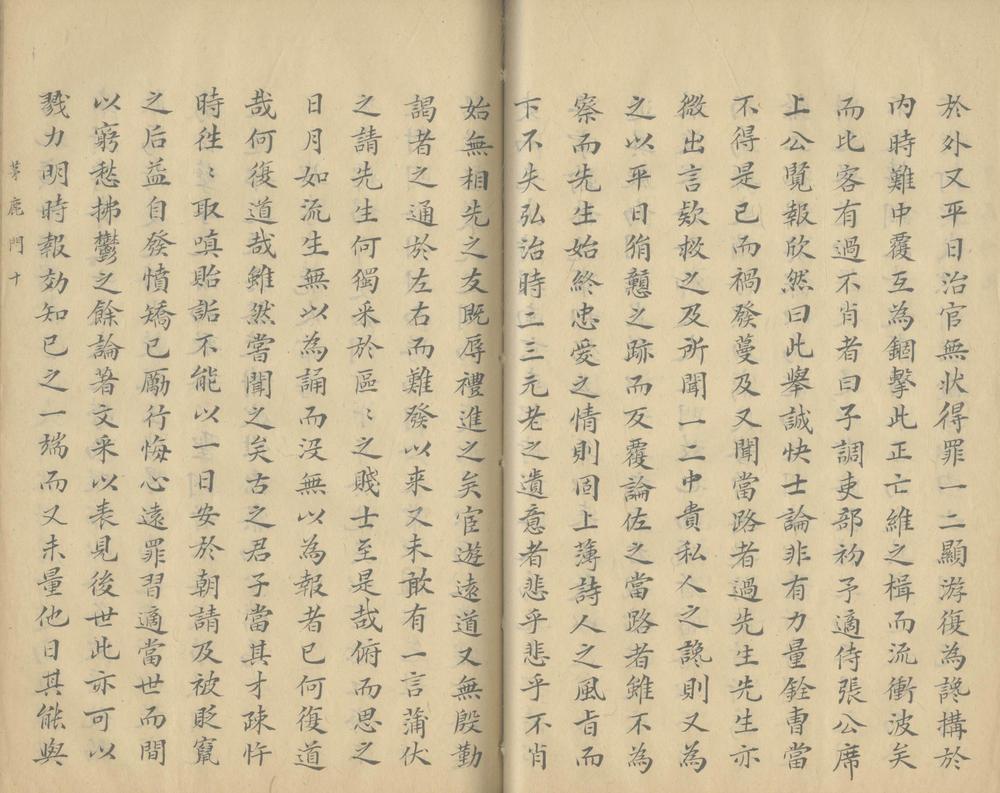 於外又平日治官無状得罪一二顯游復為讒搆於
内時難中覆互為錮擊此正亡維之楫而流衝波矣
而比客有過不肖者曰子調吏部初予適侍張公席
上公覽報欣然曰此舉誠快士論非有力量銓曹當
不得是已而禍發蔓及又聞當路者過先生先生亦
微出言欵救之及所聞一二中貴私人之讒則又為
之以平日狷戇之跡而反覆論佐之當路者雖不為
察而先生始終忠愛之情則固上薄詩人之風旨而
下不失弘治時二三元老之遺意者悲乎悲乎不肖
始無相先之友既辱禮進之矣宦遊遠道又無殷勤
謁者之通於左右而難發以来又未敢有一言蒲伏
之請先生何獨采於區〻之賤士至是哉俯而思之
日月如流生無以為誦而没無以為報者已何復道
哉何復道哉雖然嘗聞之矣古之君子當其才疎忤
時徃〻取嗔貽詬不能以一日安於朝請及被貶竄
之后益自發憤矯已勵行悔心遠罪習適當世而間
以窮愁拂鬱之餘論著文采以表見後世此亦可以
戮力明時報効知已之一端而又未量他日其能與
茅鹿門十